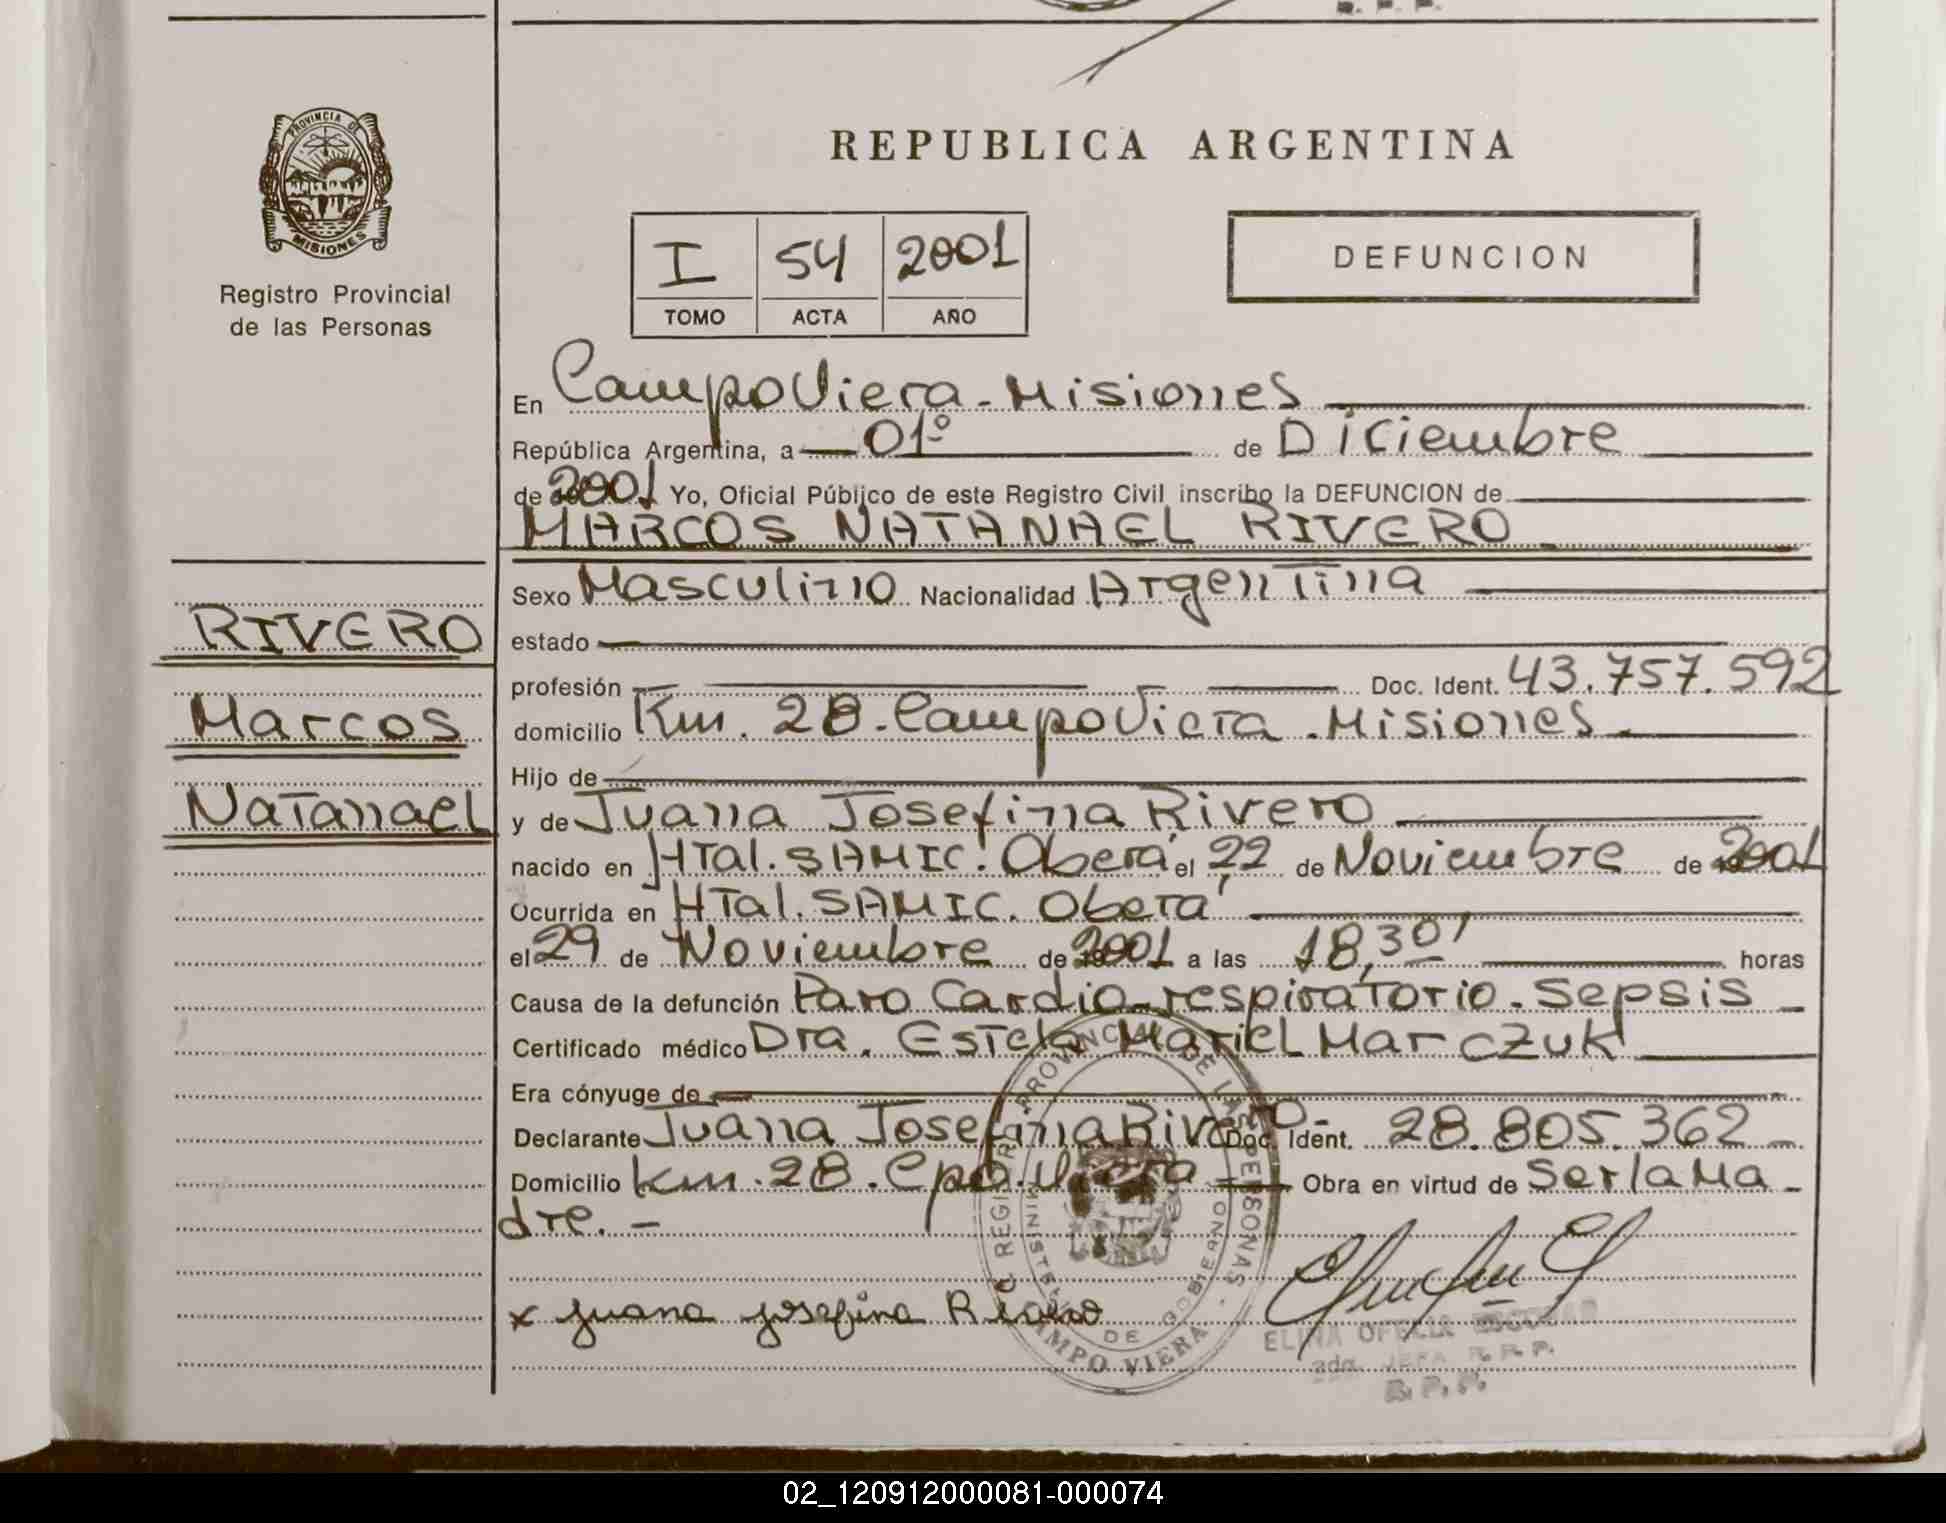 REPUBLICA ARGENTINA
PROVINCIA DE
MISIONES
Registro Provincial
de las Personas
I 54 2001
TOMO ACTA AÑO
DEFUNCION
En Campo Viera - Misiones
República Argentina, a 01º de Diciembre
de 2001 Yo, Oficial Público de este Registro Civil inscribo la DEFUNCION de
MARCOS NATANAEL RIVERO
Sexo Masculino Nacionalidad Argentina
estado
profesión Doc. Ident. 43.757.592
domicilio Km. 28. Campo Viera . Misiones
Hijo de
y de Juana Josefina Rivero
nacido en HTal. SAMIC. Oberá el 22 de Noviembre de 2001
Ocurrida en HTal. SAMIC. Oberá
el 29 de Noviembre de 2001 a las 18,30' horas
Causa de la defunción Paro Cardio-respiratorio. Sepsis
Certificado médico Dra. Estela Mariel Marczuk
Era cónyuge de
Declarante Juana Josefina Rivero - Doc. Ident. 28.805.362
Domicilio Km. 28. Cpo. Viera Obra en virtud de Ser la Ma
dre. -
x Juana Josefina Rivero
RIVERO
Marcos
Natanael
REGISTRO PROVINCIAL DE LAS PERSONAS
MINISTERIO DE GOBIERNO
CAMPO VIERA
ELINA OFELIA ESCOBAR
2da. JEFA R. P. P.
R. P. P.
02_120912000081-000074